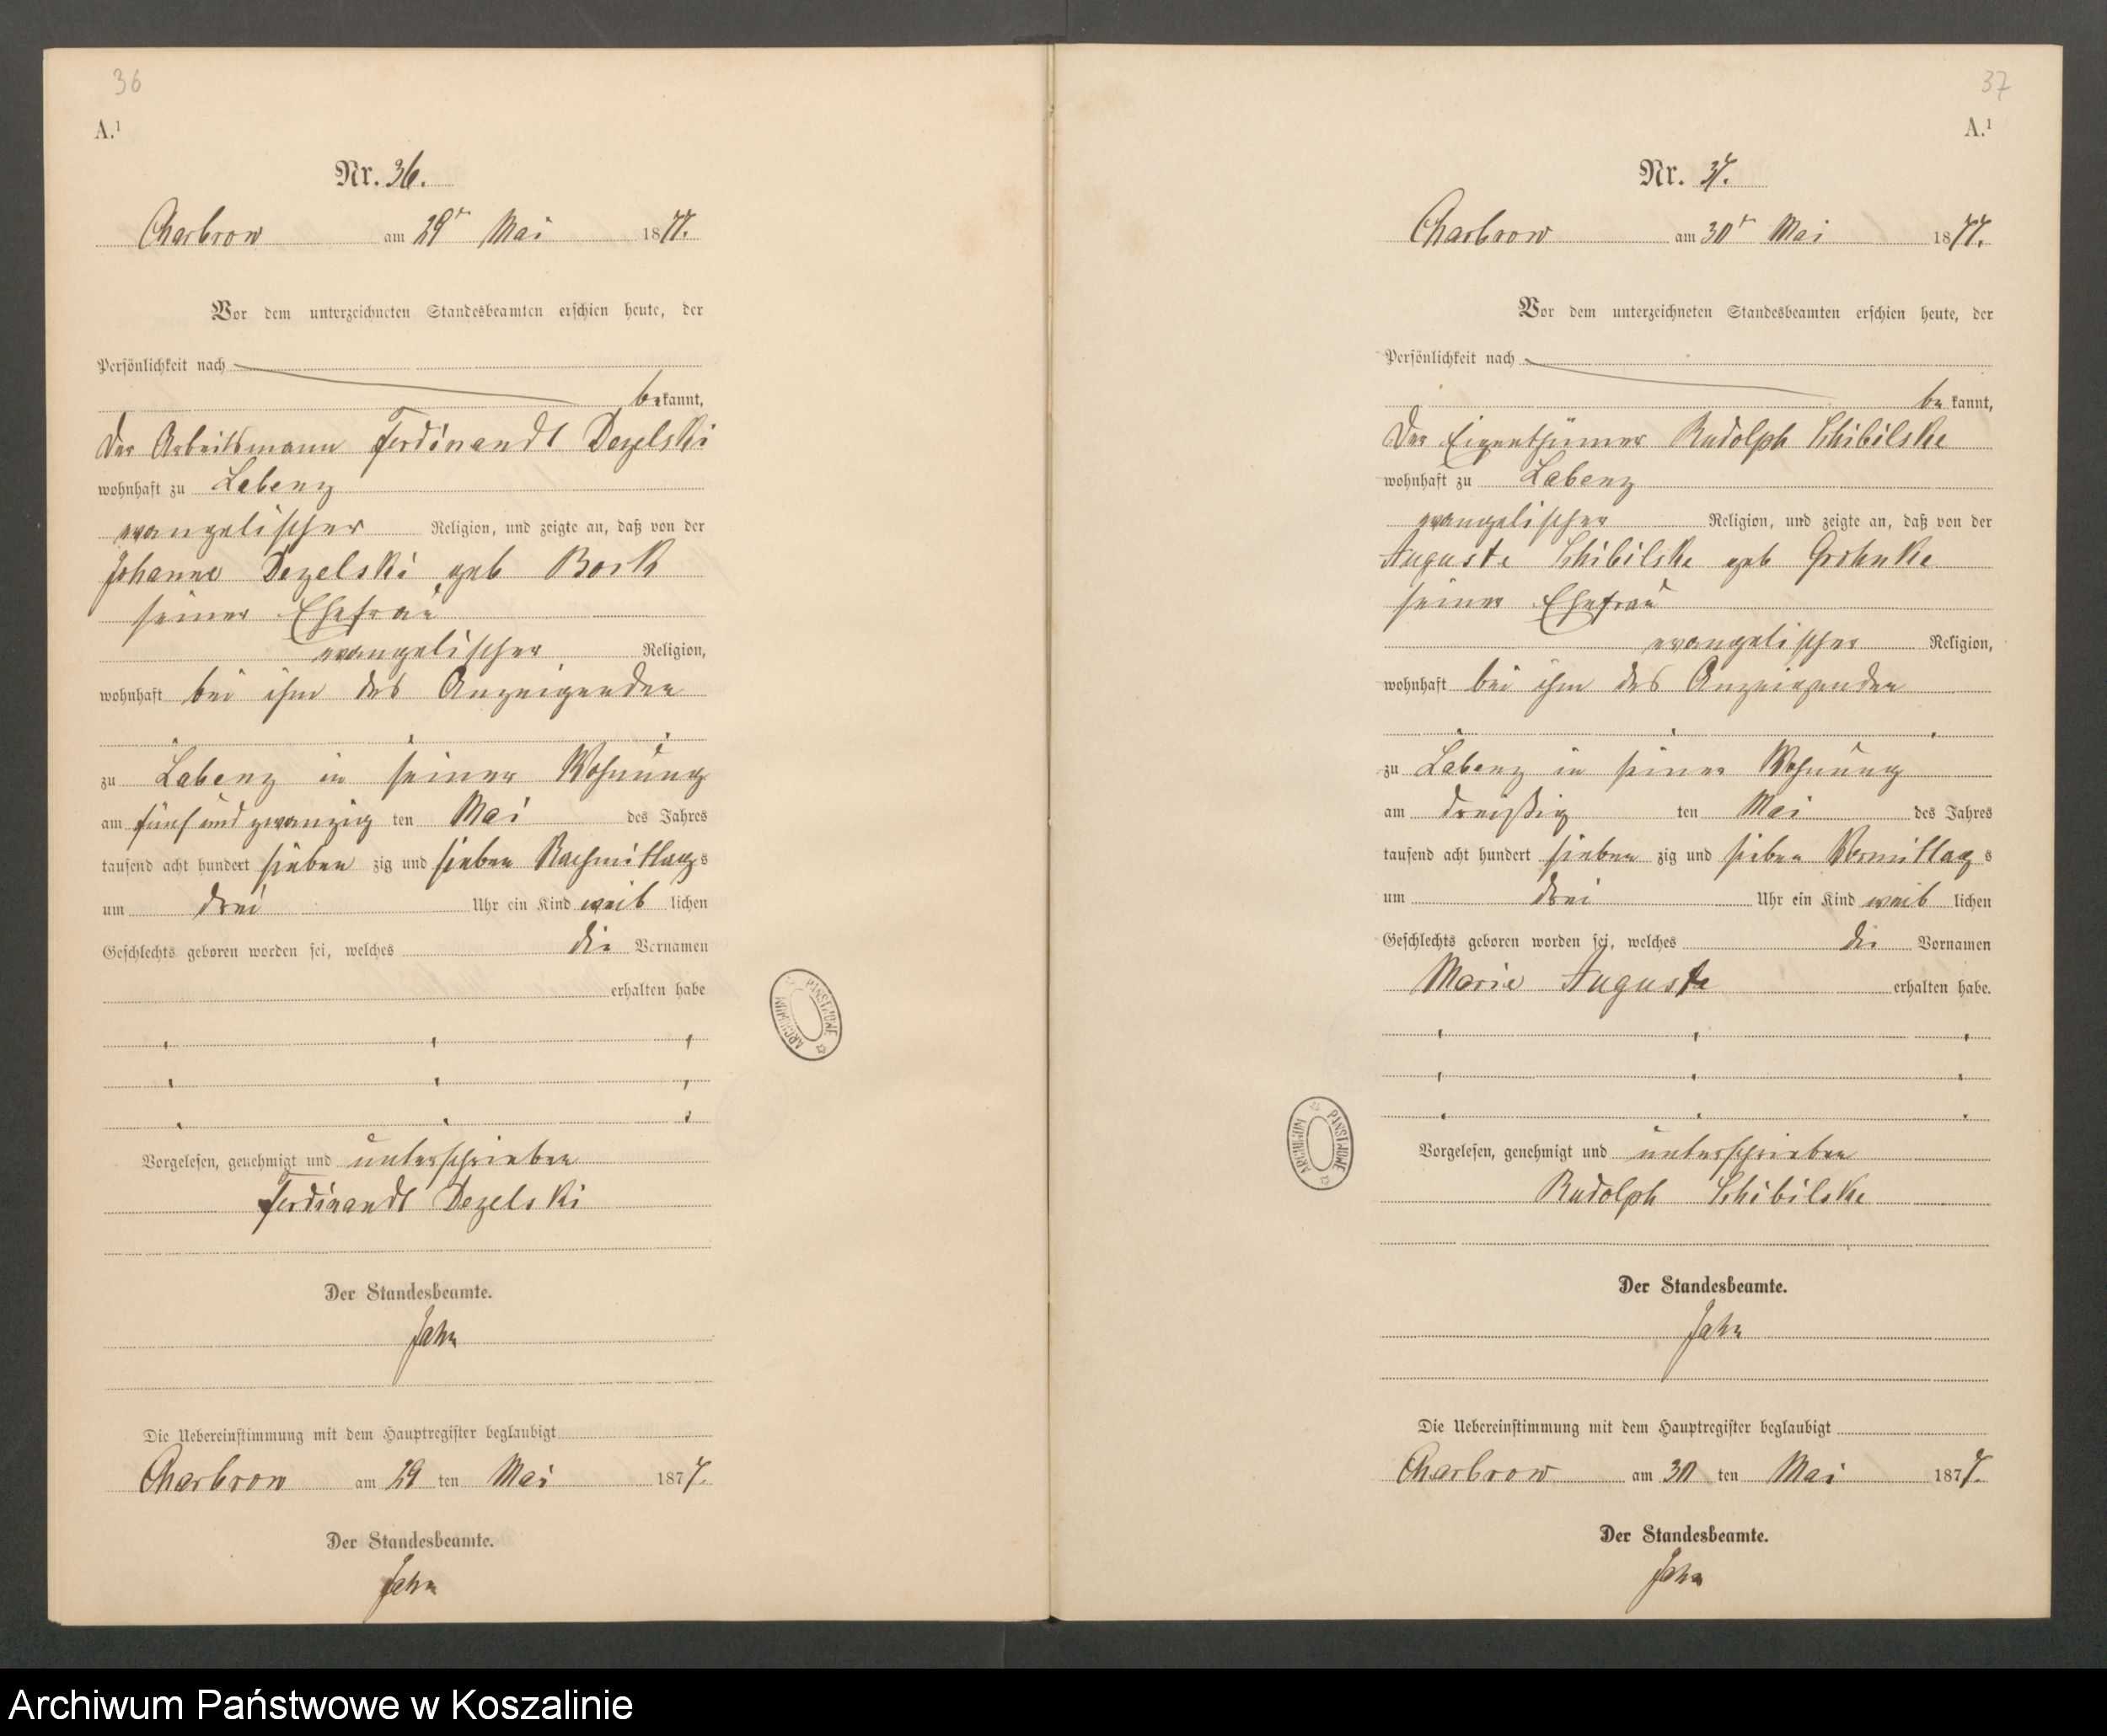 36
A.¹
Nr. 36.
Charbrow am 29ᵗ Mai 1877.
Vor dem unterzeichneten Standesbeamten erschien heute, der
Persönlichkeit nach
bekannt,
Der Arbeitsmann Ferdinandt Dezelski
wohnhaft zu Labenz
evangelischer Religion, und zeigte an, daß von der
Johanne Dezelski geb Bork
seiner Ehefrau
evangelischer Religion,
wohnhaft bei ihm des Anzeigenden
zu Labenz in seiner Wohnung
am fünf und zwanzig ten Mai des Jahres
tausend acht hundert sieben zig und sieben Nachmittags
um drei Uhr ein Kind weib lichen
Geschlechts geboren worden sei, welches die Vornamen
erhalten habe
Vorgelesen, genehmigt und unterschrieben
Ferdinandt Dezelski
Der Standesbeamte.
Jahn
Die Uebereinstimmung mit dem Hauptregister beglaubigt
Charbrow am 29 ten Mai 1877.
Der Standesbeamte.
Jahn
ARCHIWUM PAŃSTWOWE
37
A.¹
Nr. 37.
Charbrow am 30ᵗ Mai 1877.
Vor dem unterzeichneten Standesbeamten erschien heute, der
Persönlichkeit nach
be kannt,
Der Eigenthümer Rudolph Schibilske
wohnhaft zu Labenz
evangelischer Religion, und zeigte an, daß von der
Auguste Schibilske geb Grohnke
seiner Ehefrau
evangelischer Religion,
wohnhaft bei ihm des Anzeigenden
zu Labenz in seiner Wohnung
am dreißig ten Mai des Jahres
tausend acht hundert sieben zig und sieben Vormittag s
um drei Uhr ein Kind weib lichen
Geschlechts geboren worden sei, welches die Vornamen
Marie Auguste erhalten habe.
Vorgelesen, genehmigt und unterschrieben
Rudolph Schibilske
Der Standesbeamte.
Jahn
Die Uebereinstimmung mit dem Hauptregister beglaubigt
Charbrow am 30 ten Mai 1877.
Der Standesbeamte.
Jahn
ARCHIWUM PAŃSTWOWE
Archiwum Państwowe w Koszalinie